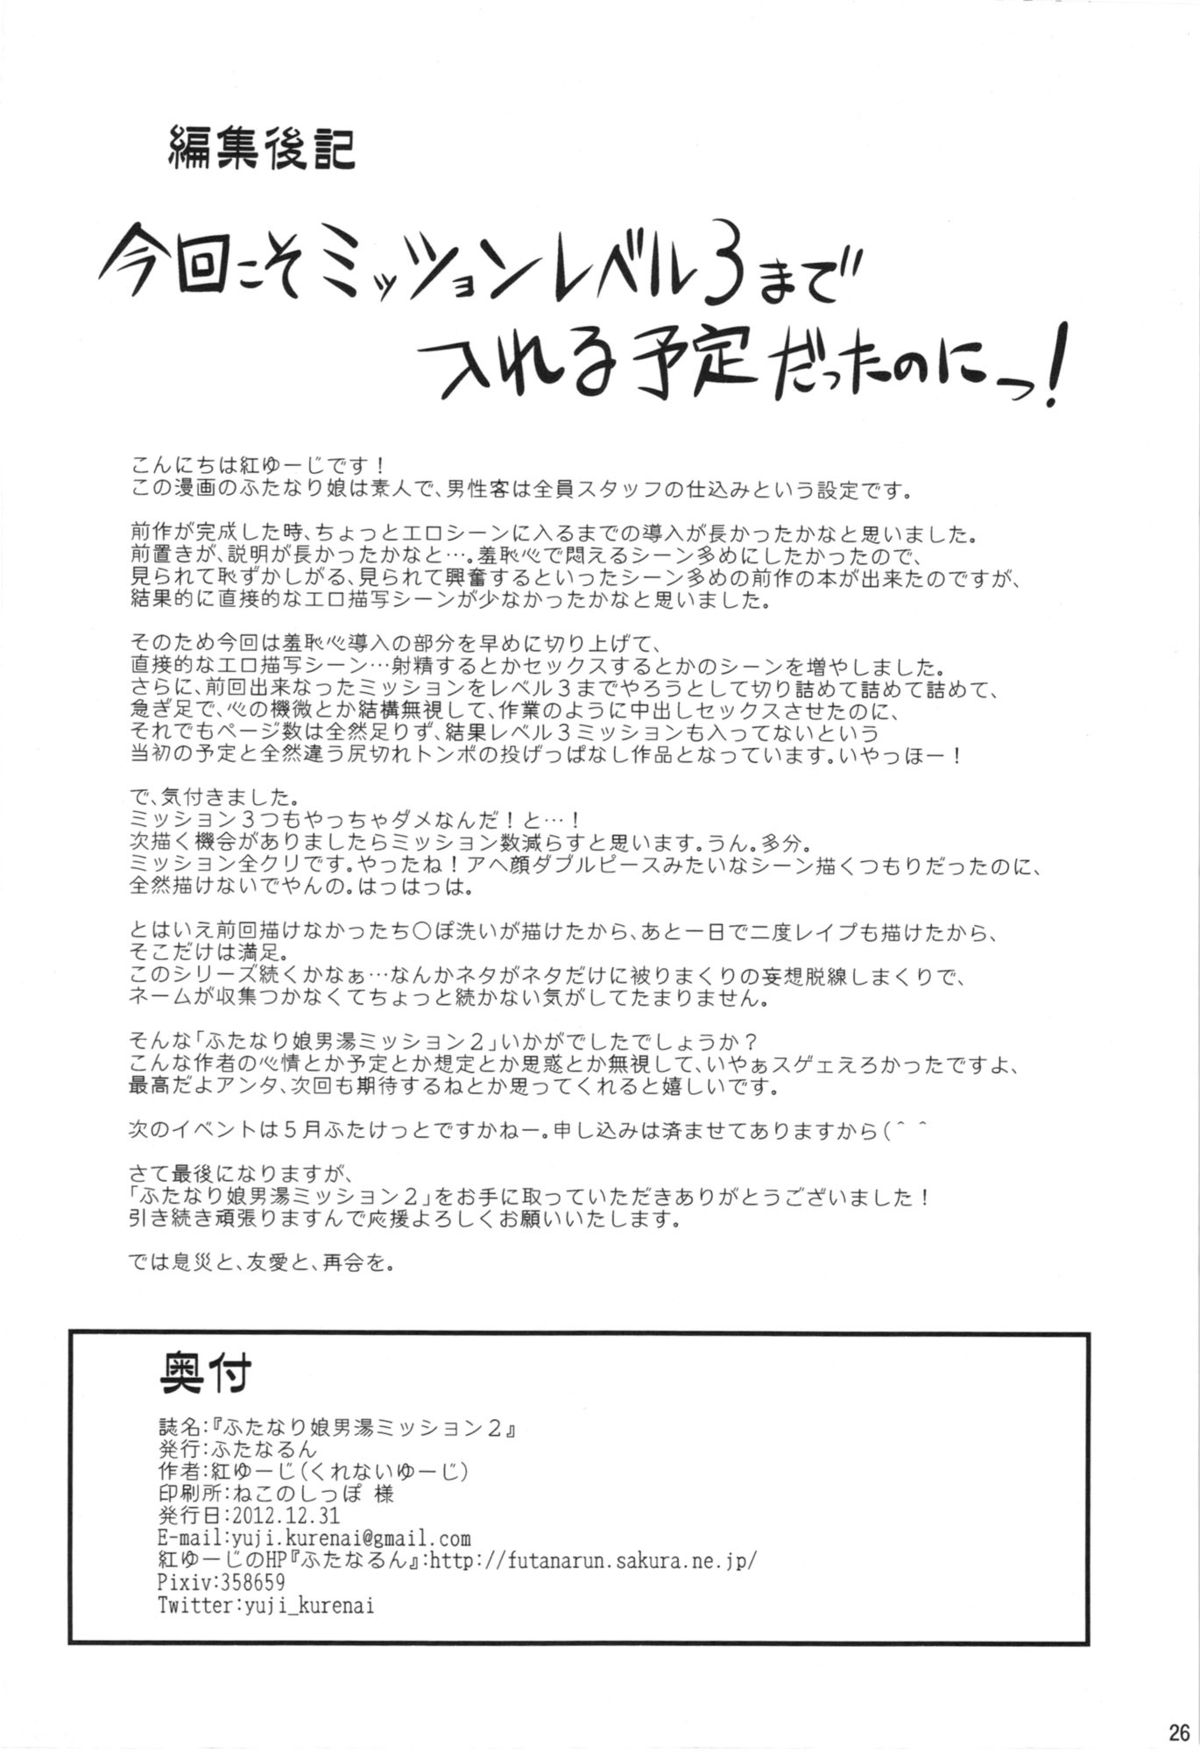 編集後記
今回こそミッションレベル3まで
入れる予定だったのにっ!
こんにちは紅ゆーじです!
この漫画のふたなり娘は素人で、男性客は全員スタッフの仕込みという設定です。
前作が完成した時、ちょっとエロシーンに入るまでの導入が長かったかなと思いました。
前置きが、説明が長かったかなと…。羞恥心で悶えるシーン多めにしたかったので、
見られて恥ずかしがる、見られて興奮するといったシーン多めの前作の本が出来たのですが、
結果的に直接的なエロ描写シーンが少なかったかなと思いました。
そのため今回は羞恥心導入の部分を早めに切り上げて、
直接的なエロ描写シーン…射精するとかセックスするとかのシーンを増やしました。
さらに、前回出来なったミッションをレベル3までやろうとして切り詰めて詰めて詰めて、
急ぎ足で、心の機微とか結構無視して、作業のように中出しセックスさせたのに、
それでもページ数は全然足りず、結果レベル3ミッションも入ってないという
当初の予定と全然違う尻切れトンボの投げっぱなし作品となっています。いやっほー!
で、気付きました。
ミッション3つもやっちゃダメなんだ!と…!
次描く機会がありましたらミッション数減らすと思います。うん。多分。
ミッション全クリです。やったね!アヘ顔ダブルピースみたいなシーン描くつもりだったのに、
全然描けないでやんの。はっはっは。
とはいえ前回描けなかったち○ぽ洗いが描けたから、あと一日で二度レイプも描けたから、
そこだけは満足。
このシリーズ続くかなぁ…なんかネタがネタだけに被りまくりの妄想脱線しまくりで、
ネームが収集つかなくてちょっと続かない気がしてたまりません。
そんな「ふたなり娘男湯ミッション2」いかがでしたでしょうか?
こんな作者の心情とか予定とか想定とか思惑とか無視して、いやぁスゲェえろかったですよ、
最高だよアンタ、次回も期待するねとか思ってくれると嬉しいです。
次のイベントは5月ふたけっとですかねー。申し込みは済ませてありますから(＾ ＾
さて最後になりますが、
「ふたなり娘男湯ミッション2」をお手に取っていただきありがとうございました!
引き続き頑張りますんで応援よろしくお願いいたします。
では息災と、友愛と、再会を。
奥付
誌名:『ふたなり娘男湯ミッション2』
発行:ふたなるん
作者:紅ゆーじ(くれないゆーじ)
印刷所:ねこのしっぽ 様
発行日:2012.12.31
E-mail:yuji.kurenai@gmail.com
紅ゆーじのHP『ふたなるん』:http://futanarun.sakura.ne.jp/
Pixiv:358659
Twitter:yuji_kurenai
26